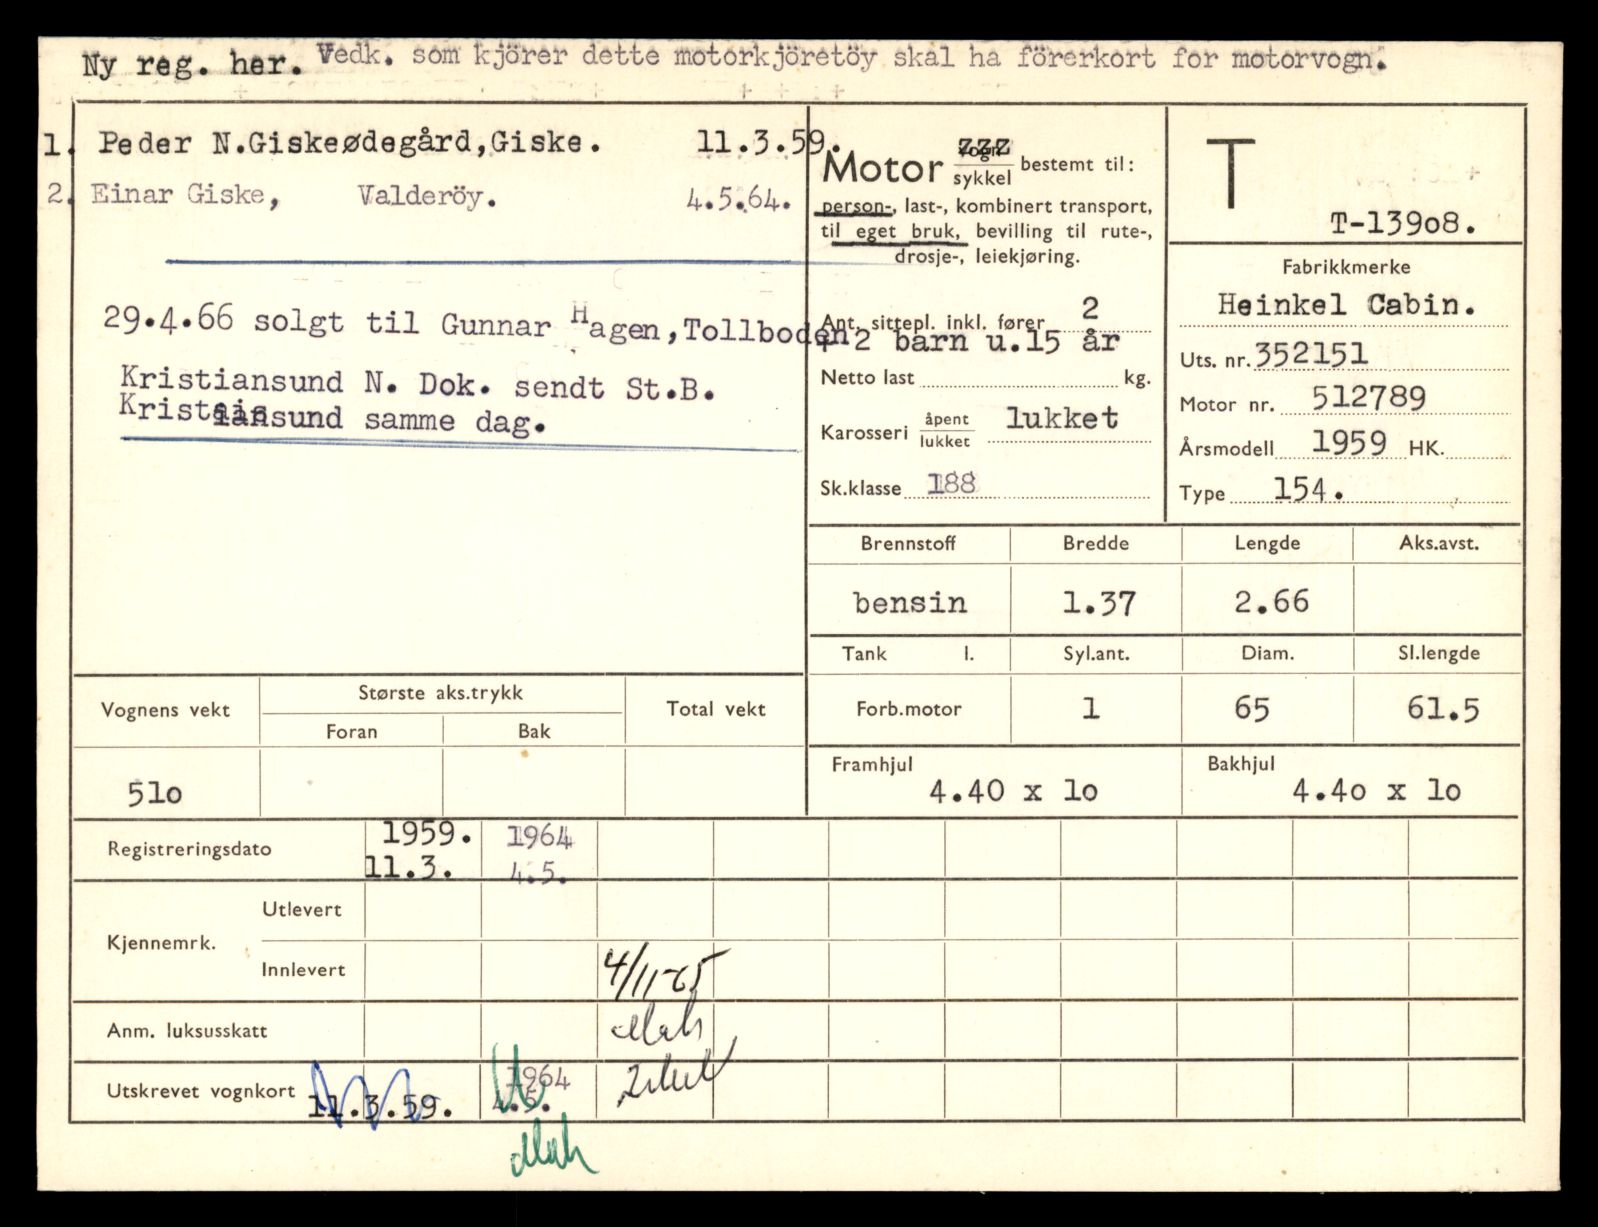 Ny reg. her. Vedk. som kjörer dette motorkjöretöy skal ha förerkort for motorvogn.
1. Peder N.Giskeødegård,Giske. 11.3.59.
2. Einar Giske, Valderöy. 4.5.64.
29.4.66 solgt til Gunnar Hagen,Tollboden
Kristiansund N. Dok. sendt St.B.
Kristiansund samme dag.
Motor vogn sykkel bestemt til:
person-, last-, kombinert transport,
til eget bruk, bevilling til rute-,
drosje-, leiekjøring.
Ant. sittepl. inkl. fører 2
+ 2 barn u.15 år
Netto last kg.
Karosseri åpent lukket lukket
Sk.klasse 188
T
T-139o8.
Fabrikkmerke
Heinkel Cabin.
Uts. nr. 352151
Motor nr. 512789
Årsmodell 1959 HK.
Type 154.
Brennstoff Bredde Lengde Aks.avst.
bensin 1.37 2.66
Tank l. Syl.ant. Diam. Sl.lengde
Forb.motor 1 65 61.5
Framhjul Bakhjul
4.40 x 1o 4.4o x 1o
Vognens vekt Største aks.trykk Total vekt
Foran Bak
51o
Registreringsdato 1959. 1964
11.3. 4.5.
Kjennemrk. Utlevert
Innlevert 4/11-65
Anm. luksusskatt
Utskrevet vognkort 11.3.59. 1964
4.5.